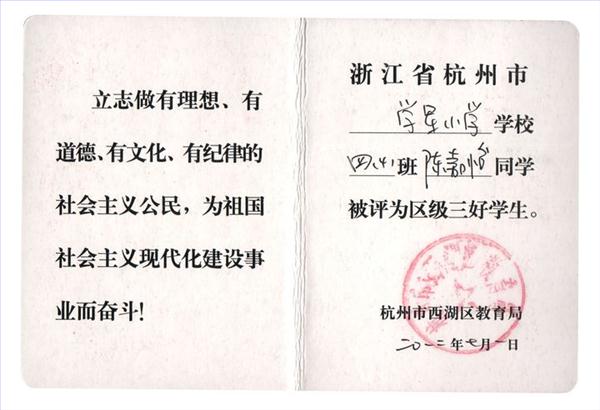 立志做有理想、有
道德、有文化、有纪律的
社会主义公民，为祖国
社会主义现代化建设事
业而奋斗！
浙江省杭州市
学军小学 学校
四(4)班 陈嘉怡 同学
被评为区级三好学生。
杭州市西湖区教育局
二〇一二年七月一日